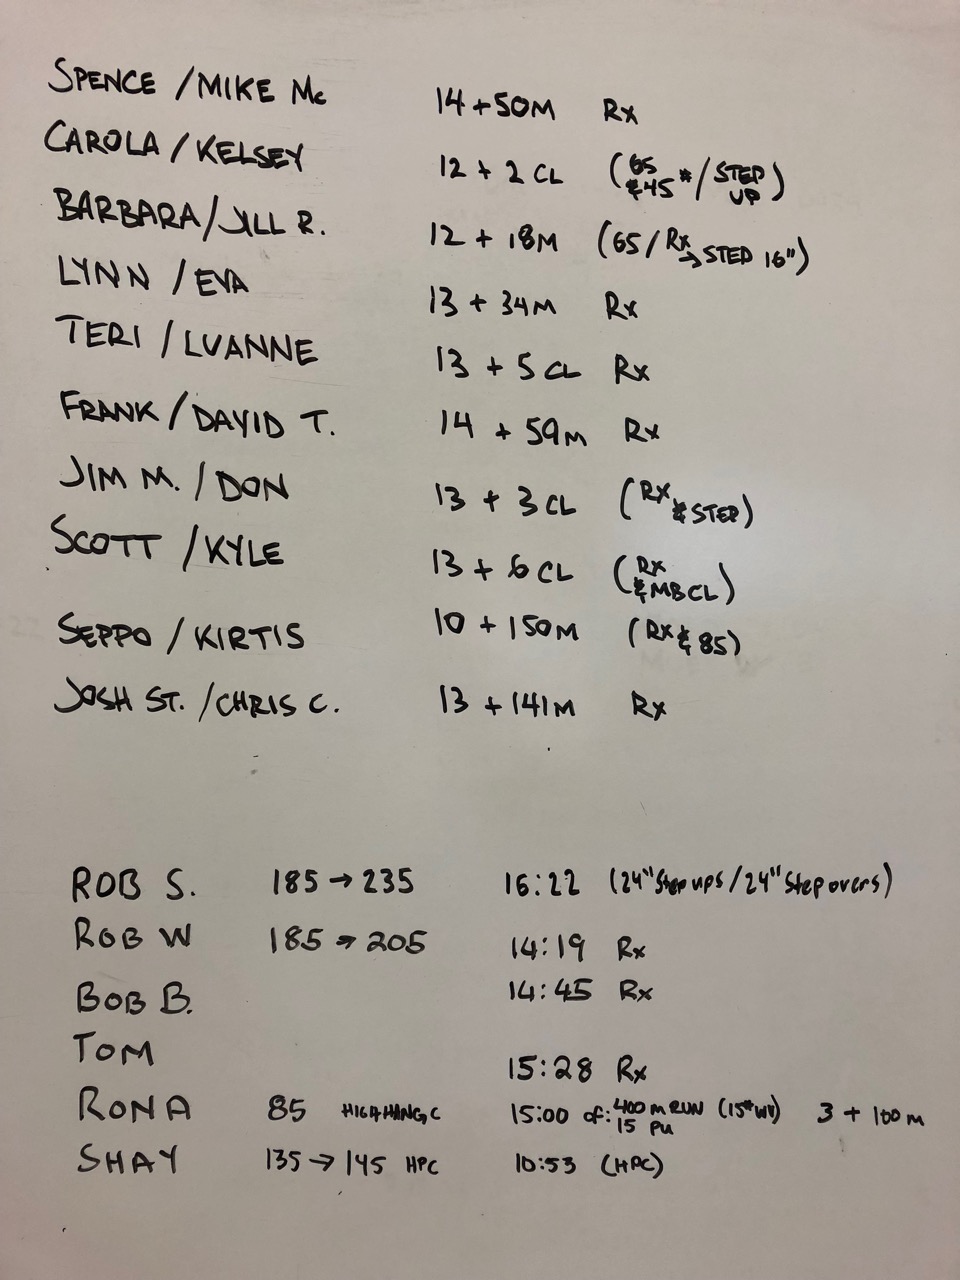 SPENCE / MIKE Mc 14 + 50M Rx
CAROLA / KELSEY 12 + 2 CL (65 & 45 # / STEP UP)
BARBARA / JILL R. 12 + 18M (65 / Rx → STEP 16")
LYNN / EVA 13 + 34M Rx
TERI / LUANNE 13 + 5 CL Rx
FRANK / DAVID T. 14 + 59M Rx
JIM M. / DON 13 + 3 CL (Rx & STEP)
SCOTT / KYLE 13 + 6 CL (Rx & MBCL)
SEPPO / KIRTIS 10 + 150M (Rx & 85)
JOSH ST. / CHRIS C. 13 + 141M Rx
ROB S. 185 → 235 16:22 (24" Step ups / 24" Step overs)
ROB W 185 → 205 14:19 Rx
BOB B. 14:45 Rx
TOM 15:28 Rx
RONA 85 HIGH HANG C 15:00 of: 400 m RUN (15# WV) 15 PU 3 + 100 m
SHAY 135 → 145 HPC 10:53 (HPC)